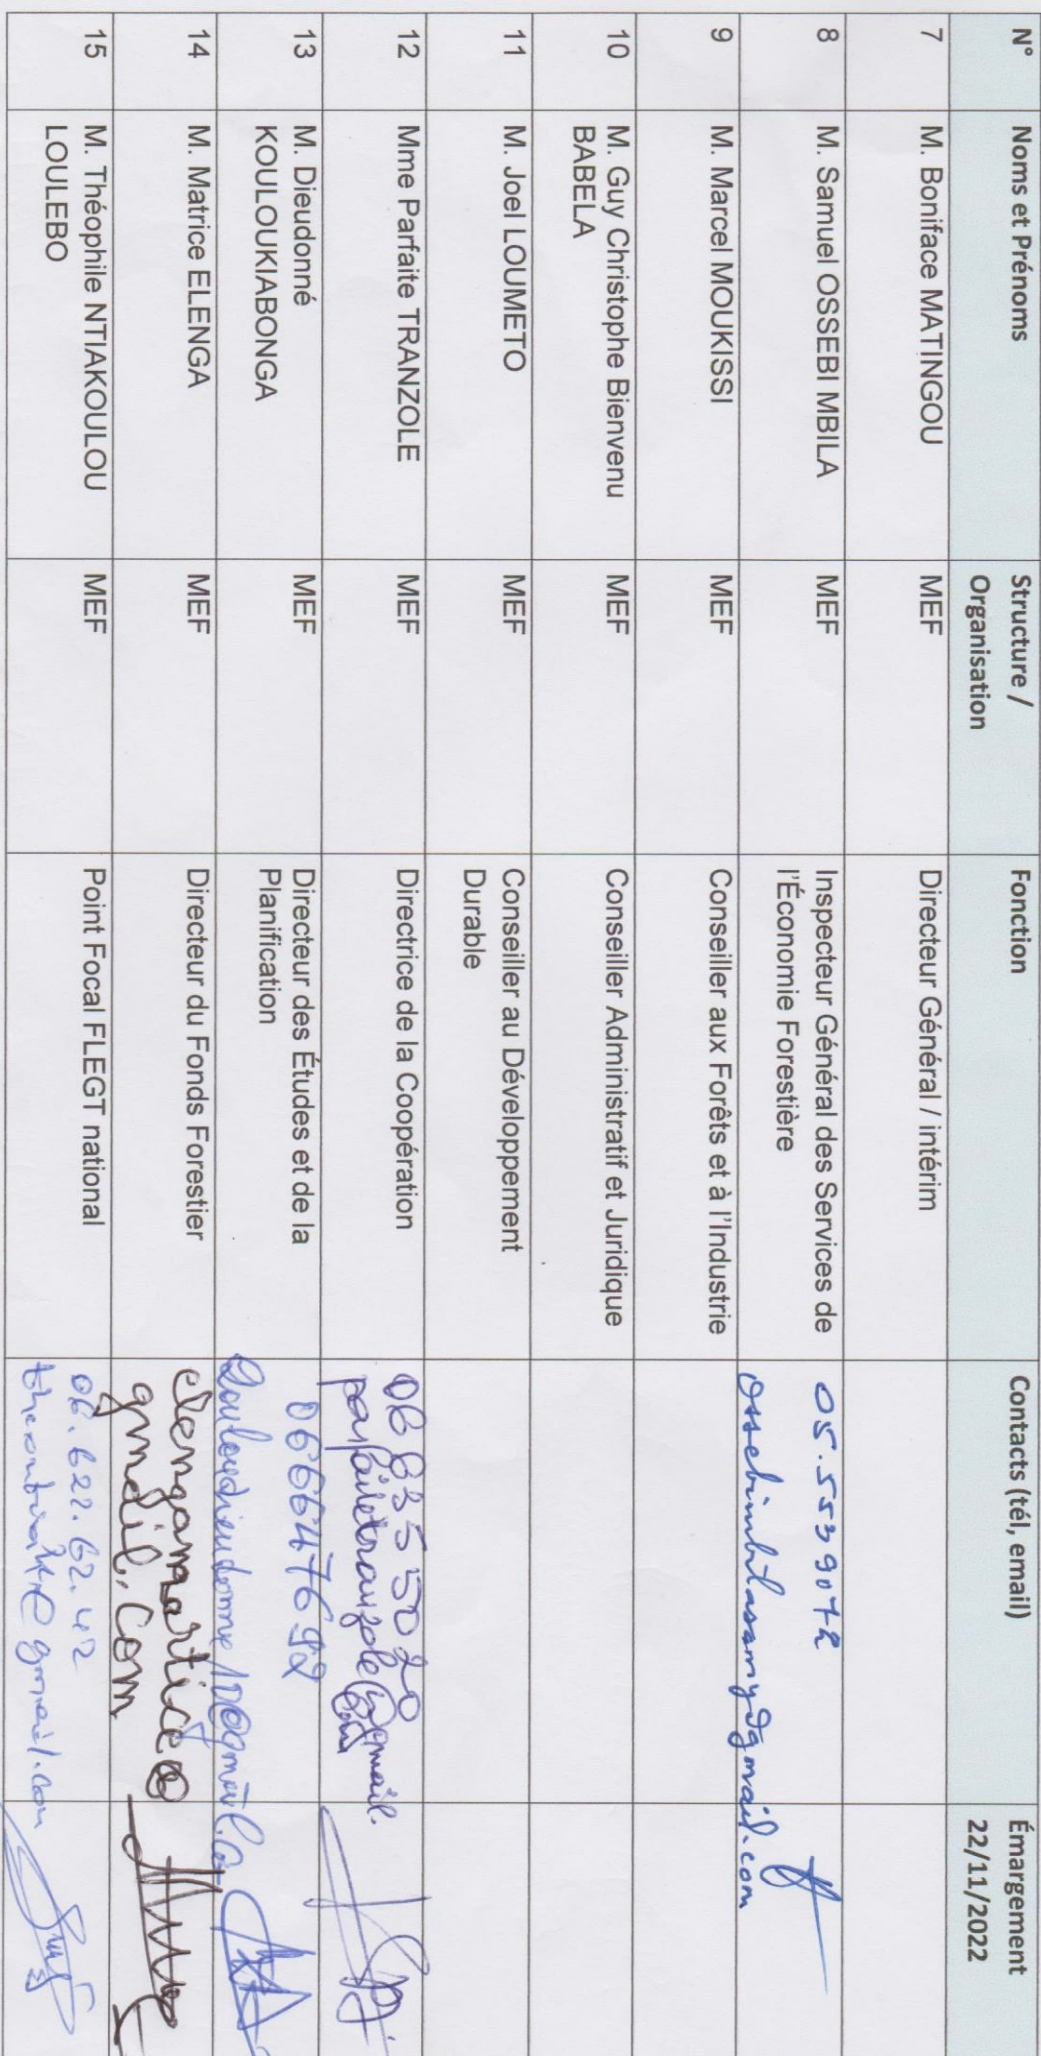 N°
Noms et Prénoms
Structure /
Organisation
Fonction
Contacts (tél, email)
Émargement
22/11/2022
7
M. Boniface MATINGOU
MEF
Directeur Général / intérim
8
M. Samuel OSSEBI MBILA
MEF
Inspecteur Général des Services de
l'Économie Forestière
05.5539072
ossebimbilasamy@gmail.com
9
M. Marcel MOUKISSI
MEF
Conseiller aux Forêts et à l'Industrie
10
M. Guy Christophe Bienvenu
BABELA
MEF
Conseiller Administratif et Juridique
11
M. Joel LOUMETO
MEF
Conseiller au Développement
Durable
12
Mme Parfaite TRANZOLE
MEF
Directrice de la Coopération
parfaitetranzole@gmail.
com
13
M. Dieudonné
KOULOUKIABONGA
MEF
Directeur des Études et de la
Planification
066647692
14
M. Matrice ELENGA
MEF
Directeur du Fonds Forestier
elengamartice@
gmail.com
15
M. Théophile NTIAKOULOU
LOULEBO
MEF
Point Focal FLEGT national
06.622.62.42